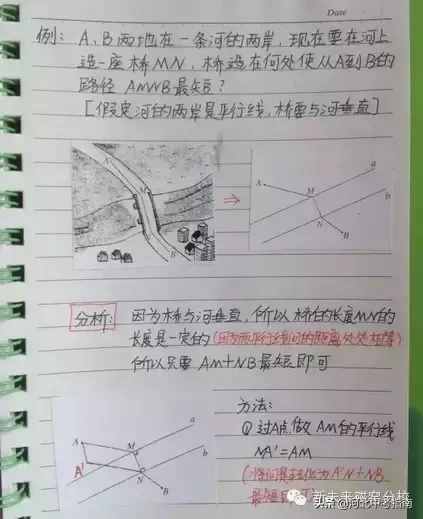 Date
例: A、B两地在一条河的两岸,现在要在河上
造一座桥MN,桥造在何处使从A到B的
路径AMNB最短?
[假定河的两岸是平行线,桥要与河垂直]
A
N
M
B
⇒
A
M
N
B
a
b
分析: 因为桥与河垂直,所以桥的长度MN的
长度是一定的(因为两平行线间的距离处处相等)
所以只要AM+NB最短即可
方法:
过A点做AM的平行线
NA'=AM
A'N+NB
最短
A
A'
M
N
B
a
b
新未来磁窑分校
头条@河北中考指南